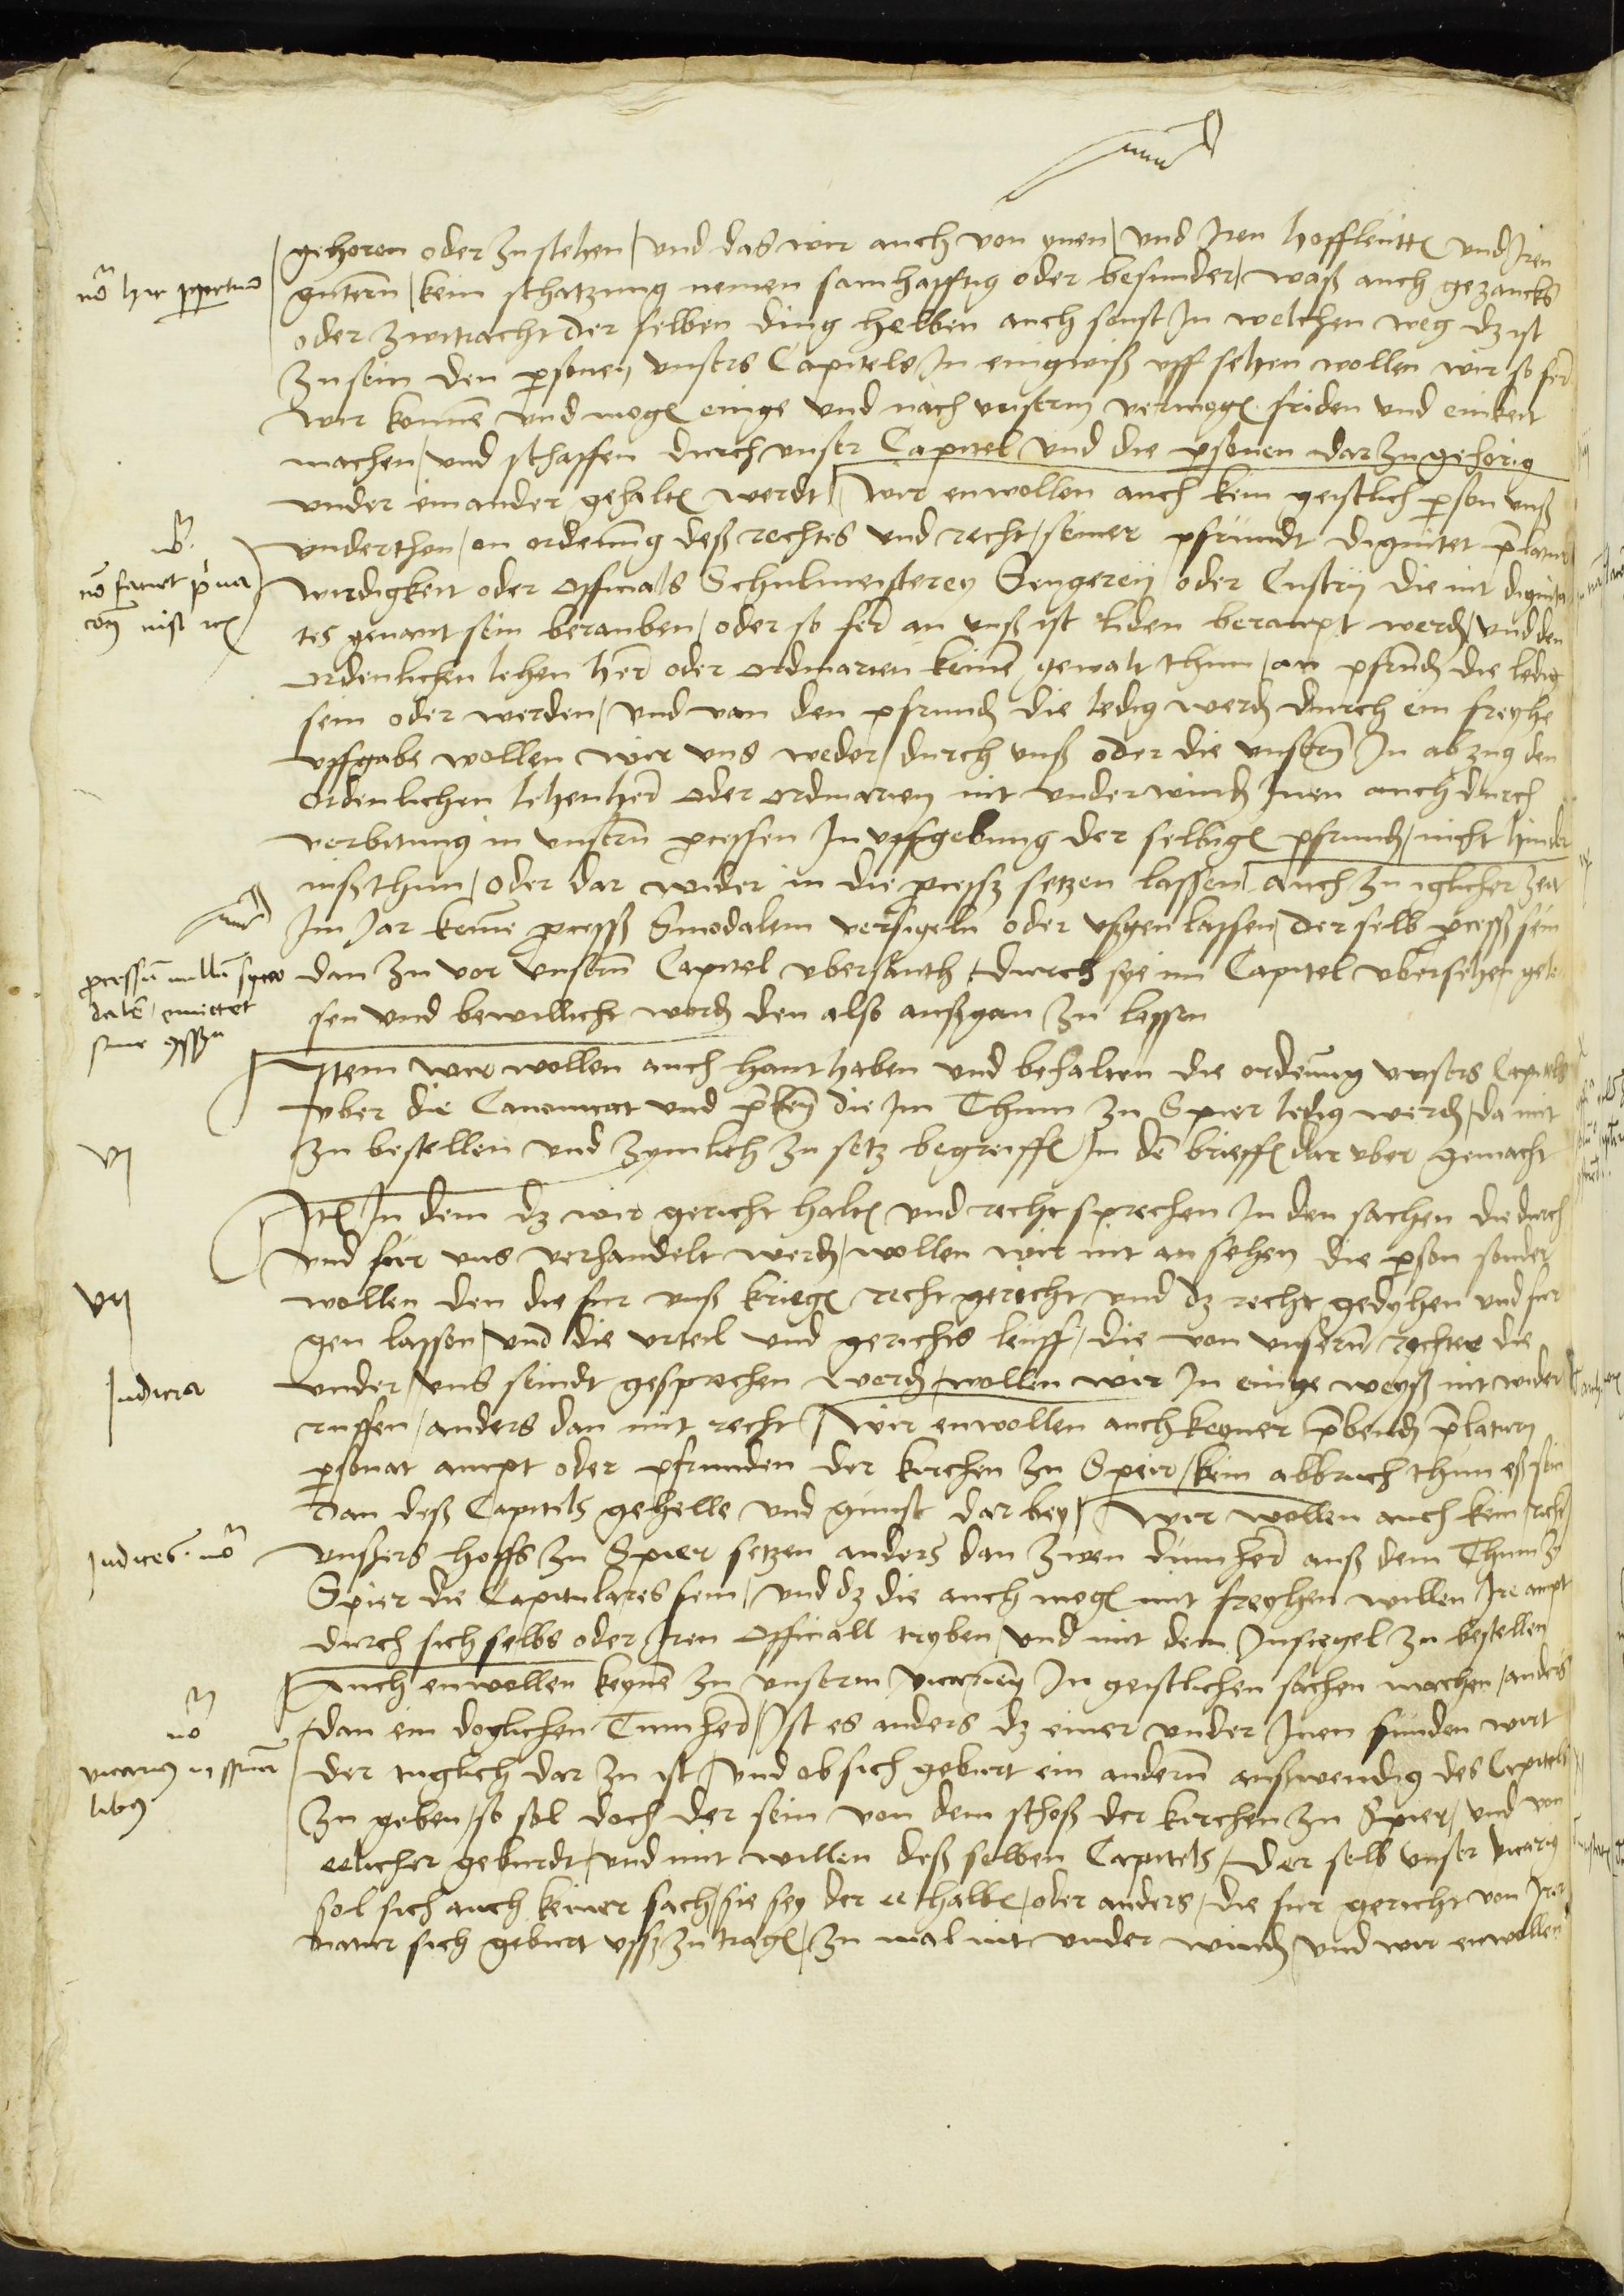 gehoren oder zu stehen / und das wir auch von ynen / und Iren hoffleutten und Iren
nō hic perpetuo
guttern / kein schatzung nemen samhafftig oder besunder / waß auch gezancks
oder zwitracht der selben ding helben auch sonst In welchen weg dz ist
zu sein den personen unsers Capitels In eingwiß uff sehen wollen wir so fer
wir konnē und mogē einge und nach unserm vermogē friden und einkeit
machen / und schaffen durch unser Capitel und die personen dar zu gehorig
under einander gehaltē werdt / Wir enwollen auch kein geistlich person unß
underthon / on ordenung deß rechtes und recht / seiner pfrundt dignitet prelatur
nō.
nō faciet priva
coēm nisi
wirdigkeit oder officials Schulmeisterey Sengerey oder Custry die nit dignita
tes genant sein berauben / oder so fer an unß ist liden beraupt werdē / und den
ordenlichen lehen her oder ordinarien keinē gewalt thun / an pfrundē die ledig
sein oder werden / und van den pfrundē die ledig werdē durch ein freyhe
uffgabe wollen wir uns weder / durch unß oder die unsern In abzug den
ordenlichen lehenher oder ordinarien nit underwindē Inen auch durch
verbitung in unsern processen In uffgebung der selbigē pfrundē / nicht hinder
nißthun / oder dar wider in die processz setzen lassen / auch zu iglicher zeit
Im Jar keinē processz Sinodalem versigeln oder ußgen lassen / der selb processz sein
processū nullū syno
dalē / emittet
sine
dan zu vor unserm Capitel ubersanth / durch sye im Capitel ubersehen gele
sen und bewillicht werdē den also außgan zu lassen
Item wir wollen auch hant haben und behalten die ordenung unsers Capitels
uber die Canonicat und die Im Thum zu Spier ledig werdē / da mit
vi
zu bestellen und zymlich zu setz begreiffē In dē brieffē dar uber gemacht
Itē In dem dz wir gericht haltē und recht sprechen In den sachen die durch
und fur uns verhandelt werdē / wollen wir nit an sehen die person sonder
vii
wollen den die fur unß kriegē recht gericht und dz recht gedyhen und fur
gen lassen / und die urteil und gerichts leuff / die von unsern richter die
Judicia
under / uns seindt gesprochen werdē / wollen wir In einge weyß nit wider
ruffen / anders dan mit recht / Wir enwollen auch keyner prebendē prelaturn
personat ampt oder pfrunden der kirchen zu Speir / kein abbruch thun eß sein
dan deß Capitels gehelle und gunst dar bey / Wir wollen auch kein richt
Judices. nō
unsers hoffs zu Spier setzen anders dan zwen dumher auß dem Thum zu
Spier die Capitulares sein / und dz die auch mogē mit freyhen willen Ire ampt
durch sich selbs oder Iren Officiall tryben / und mit dem Insiegel zu bestellen
Auch enwollen keynē zu unserm vicarien In geistlichen sachen machen / anders
nō
dan ein doglichen Tumher / Ist es anders dz einer under Inen funden wirt
vicarius in spirita
libus.
der tuglich dar zu ist / Und ob sich geburt ein andern außwendig des Capitels
zu geben / so sol doch der sein von dem schoß der kirchen zu Spier / und von
eelicher geburdt / und mit willen deß selben Capitels / Der selb unser vicari
sol sich auch keiner sach / sie sey der ee halbē / oder anders / die fur gericht von Irer
natur sich geburt uff zu tragē / zu mal nit under windē / und wir enwollen